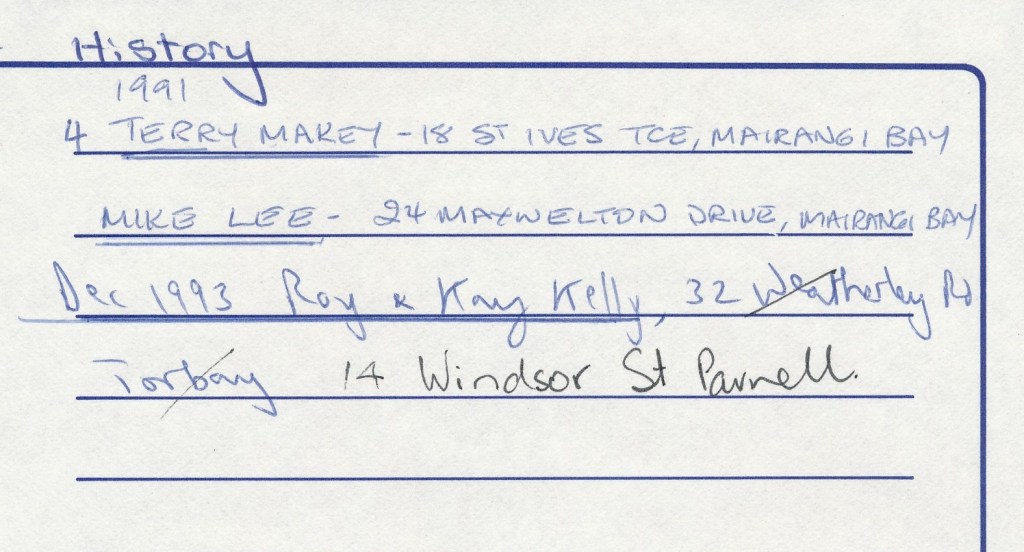 History
1991
4 TERRY MAKEY - 18 ST IVES TCE, MAIRANGI BAY
MIKE LEE - 24 MAXWELTON DRIVE, MAIRANGI BAY
Dec 1993 Roy & Kay Kelly, 32 Weatherley Rd
Torbay 14 Windsor St Parnell.